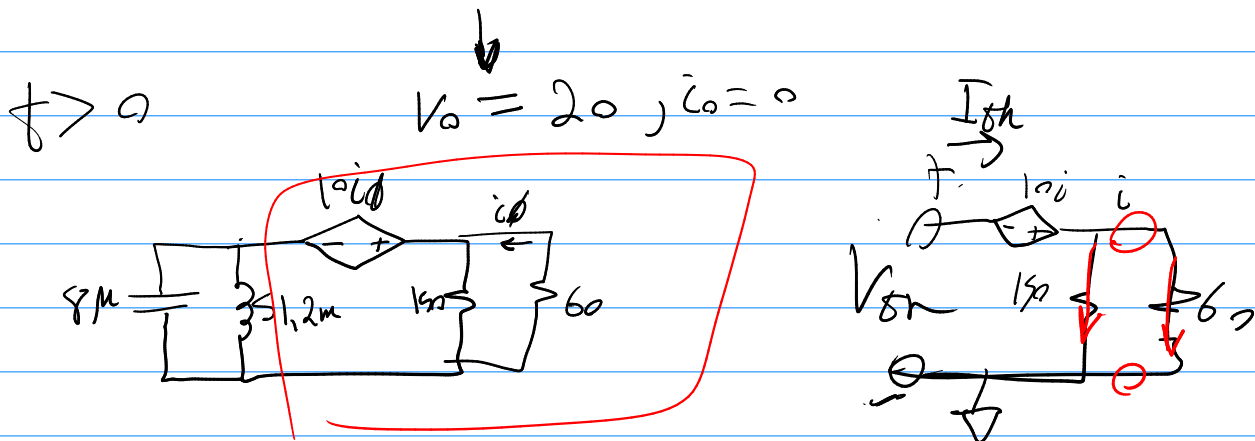 t > 0
V₀ = 20 , i₀ = 0
I_th
10iφ
iφ
8μ
51,2m
150
60
+
10i
i
- +
V_th
150
60
-